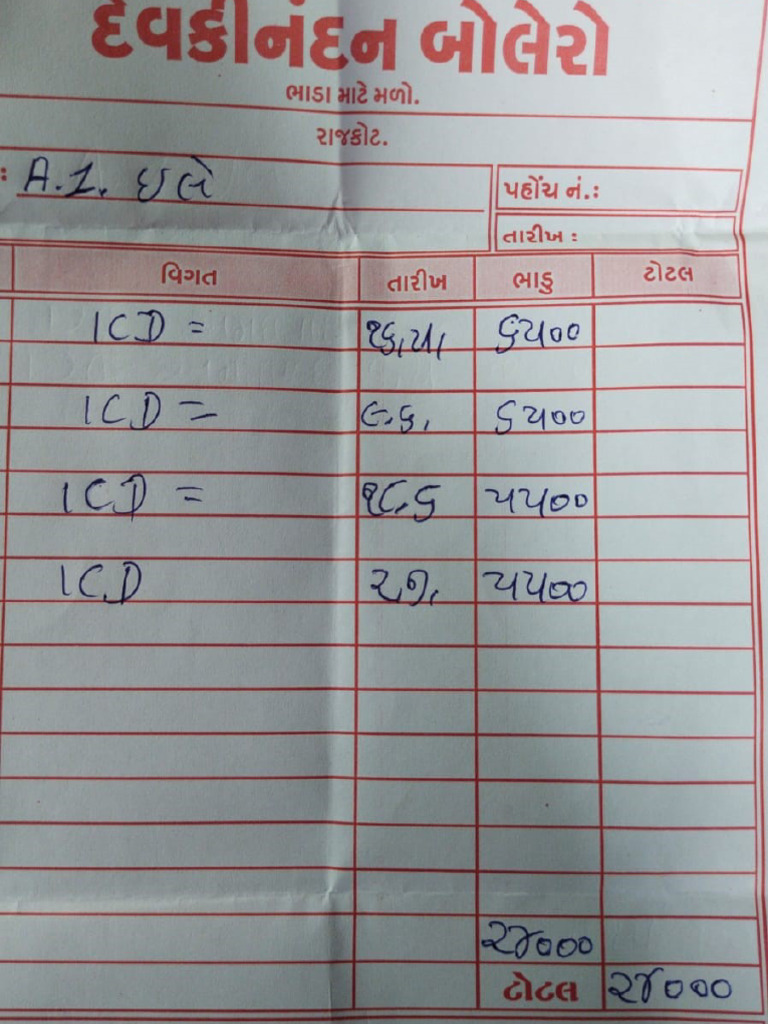 દેવકીનંદન બોલેરો
ભાડા માટે મળો.
રાજકોટ.
: A.1. ઇલે
પહોંચ નં.:
તારીખ :
વિગત તારીખ ભાડુ ટોટલ
ICD = ૬૫૦૦
ICD = ૯.૬. ૬૫૦૦
ICD = ૧૮.૬ ૫૫૦૦
ICD ૨.૭. ૫૫૦૦
૨૪૦૦૦
ટોટલ ૨૪૦૦૦